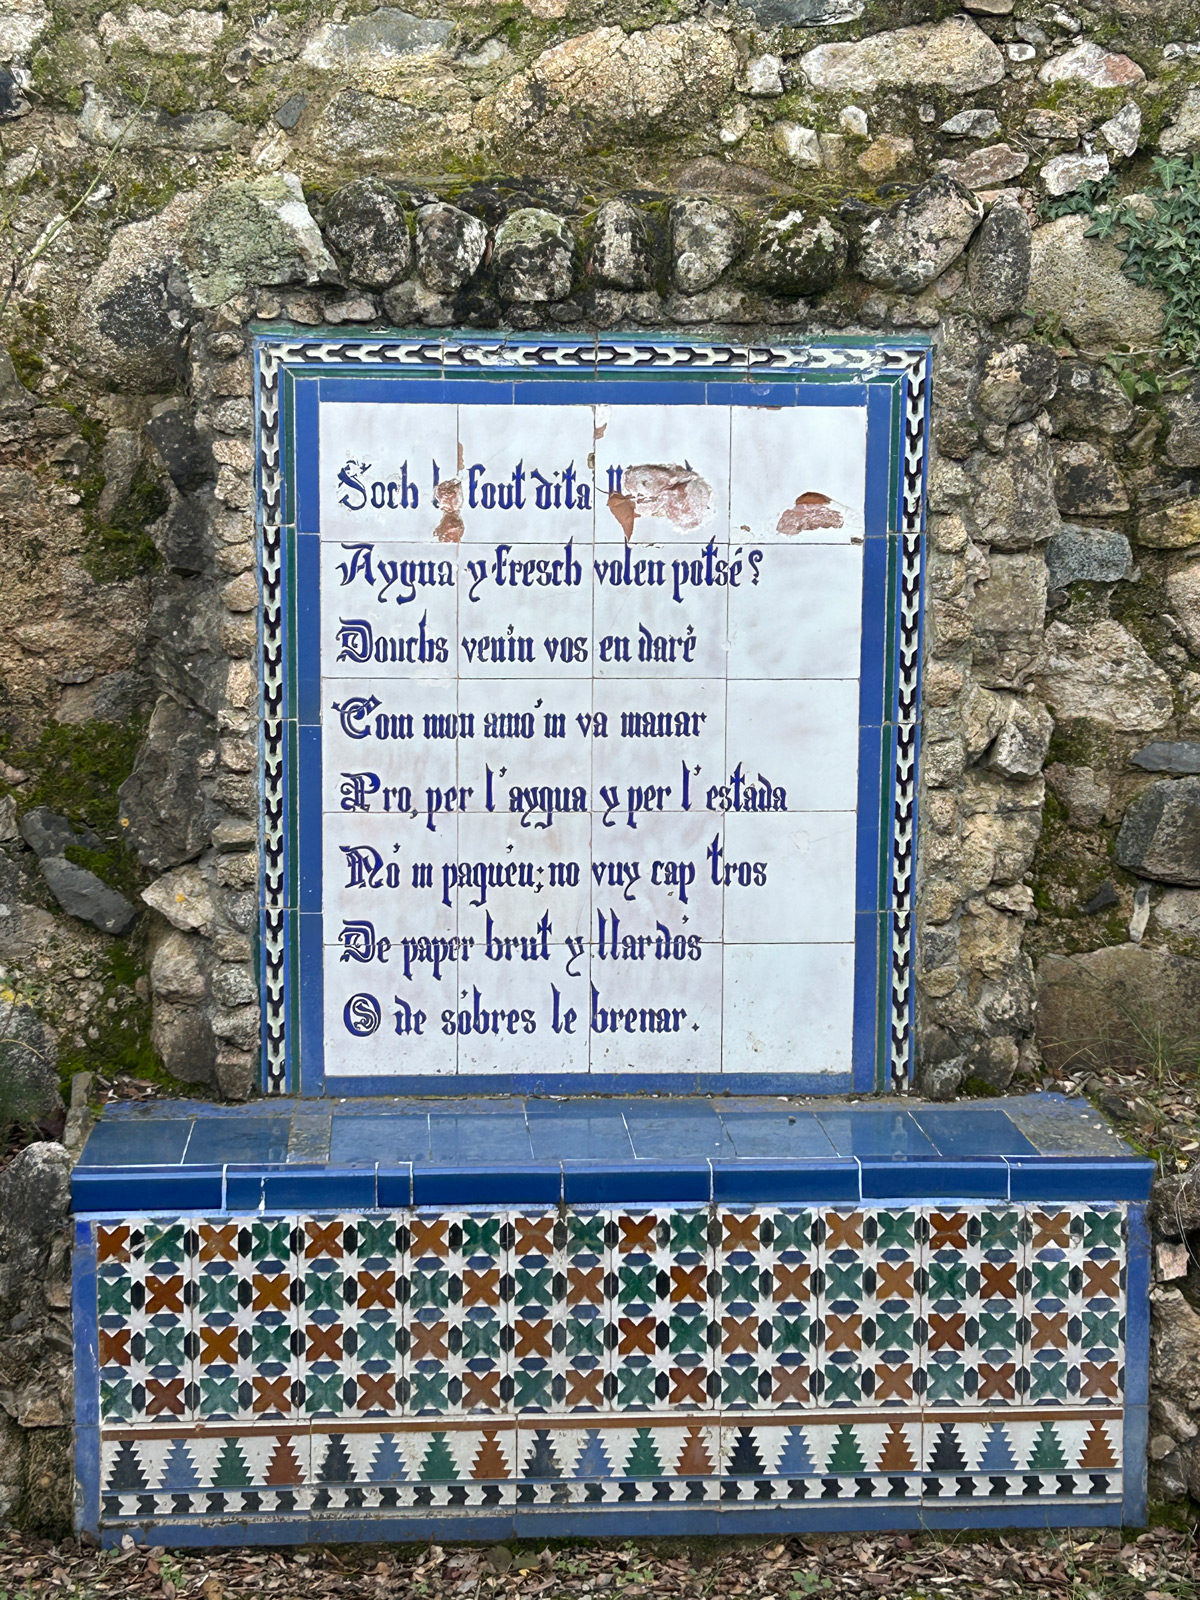 Soch l fout dita
Aygua y fresch volen potsé?
Douchs venin vos en daré
Com mon amo'm va manar
Pro, per l'aygua y per l'estada
No'm paguéu; no vuy cap tros
De paper brut y llardós
O de sobres le brenar.